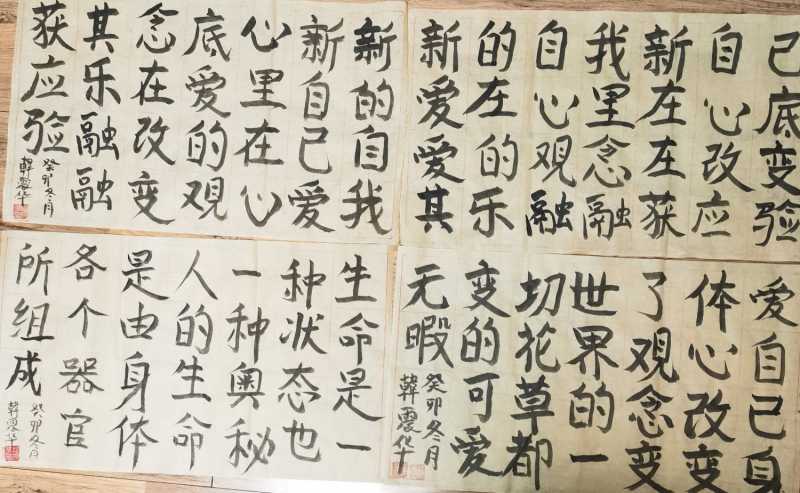 新的自我
新自己爱
心里在心
底爱的观
念在改变
其乐融融
获应验
癸卯冬月
韓震华
新的自我新自己
爱在心里在心底
爱的观念在改变
其乐融融获应验
生命是一
种状态也
一种奥秘
人的生命
是由身体
各个器官
所组成
癸卯冬月
韓震华
爱自己身
体心改变
了观念变
世界的一
切花草都
变的可爱
无暇
癸卯冬月
韓震华